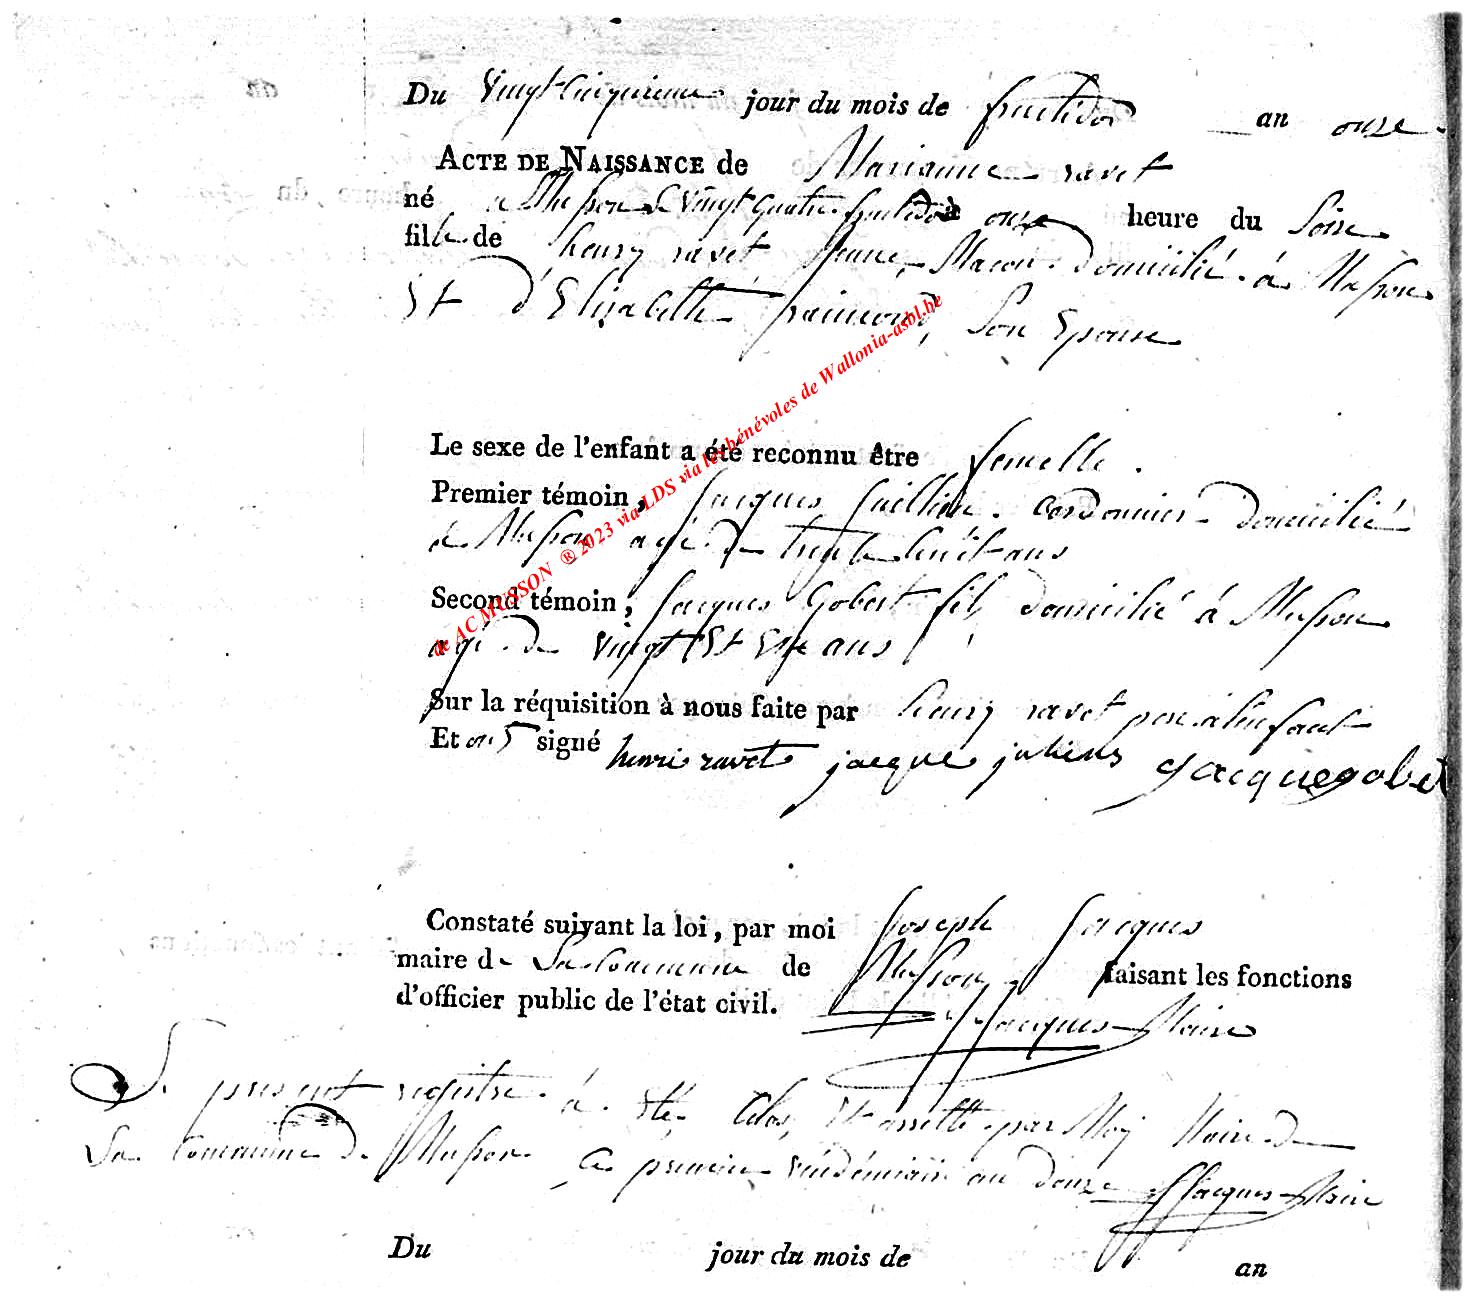 Du Vingt Cinquieme jour du mois de fructidor an onze
ACTE DE NAISSANCE de Marianne ravet
né a Musson le vingt quatre fructidor à onze heure du Soire
fille de henry ravet jeune, Macon domicilié à Musson
Et d'Elisabette, Son Epouse
Le sexe de l'enfant a été reconnu être femelle.
Premier témoin, Jacques Juillien cordonnier domicilié
à Musson agé de trente huit ans
Second témoin, Jacques Gobert fils domicilié à Musson
agé de vingt Et ans
Sur la réquisition à nous faite par henry ravet pere à l'enfant
Et ont signé henri ravet jacque juliens jacque gobet
Constaté suivant la loi, par moi Joseph Jacques
maire de La Commune de Musson faisant les fonctions
d'officier public de l'état civil. Jacques Maire
Le present registre à été Clos, Et arretté par Moy Maire de
La Commune de Musson Ce premier vendemiair an douze Jacques Maire
Du jour du mois de an
de AC MUSSON ® 2023 via LDS via les bénévoles de Wallonia-asbl.be